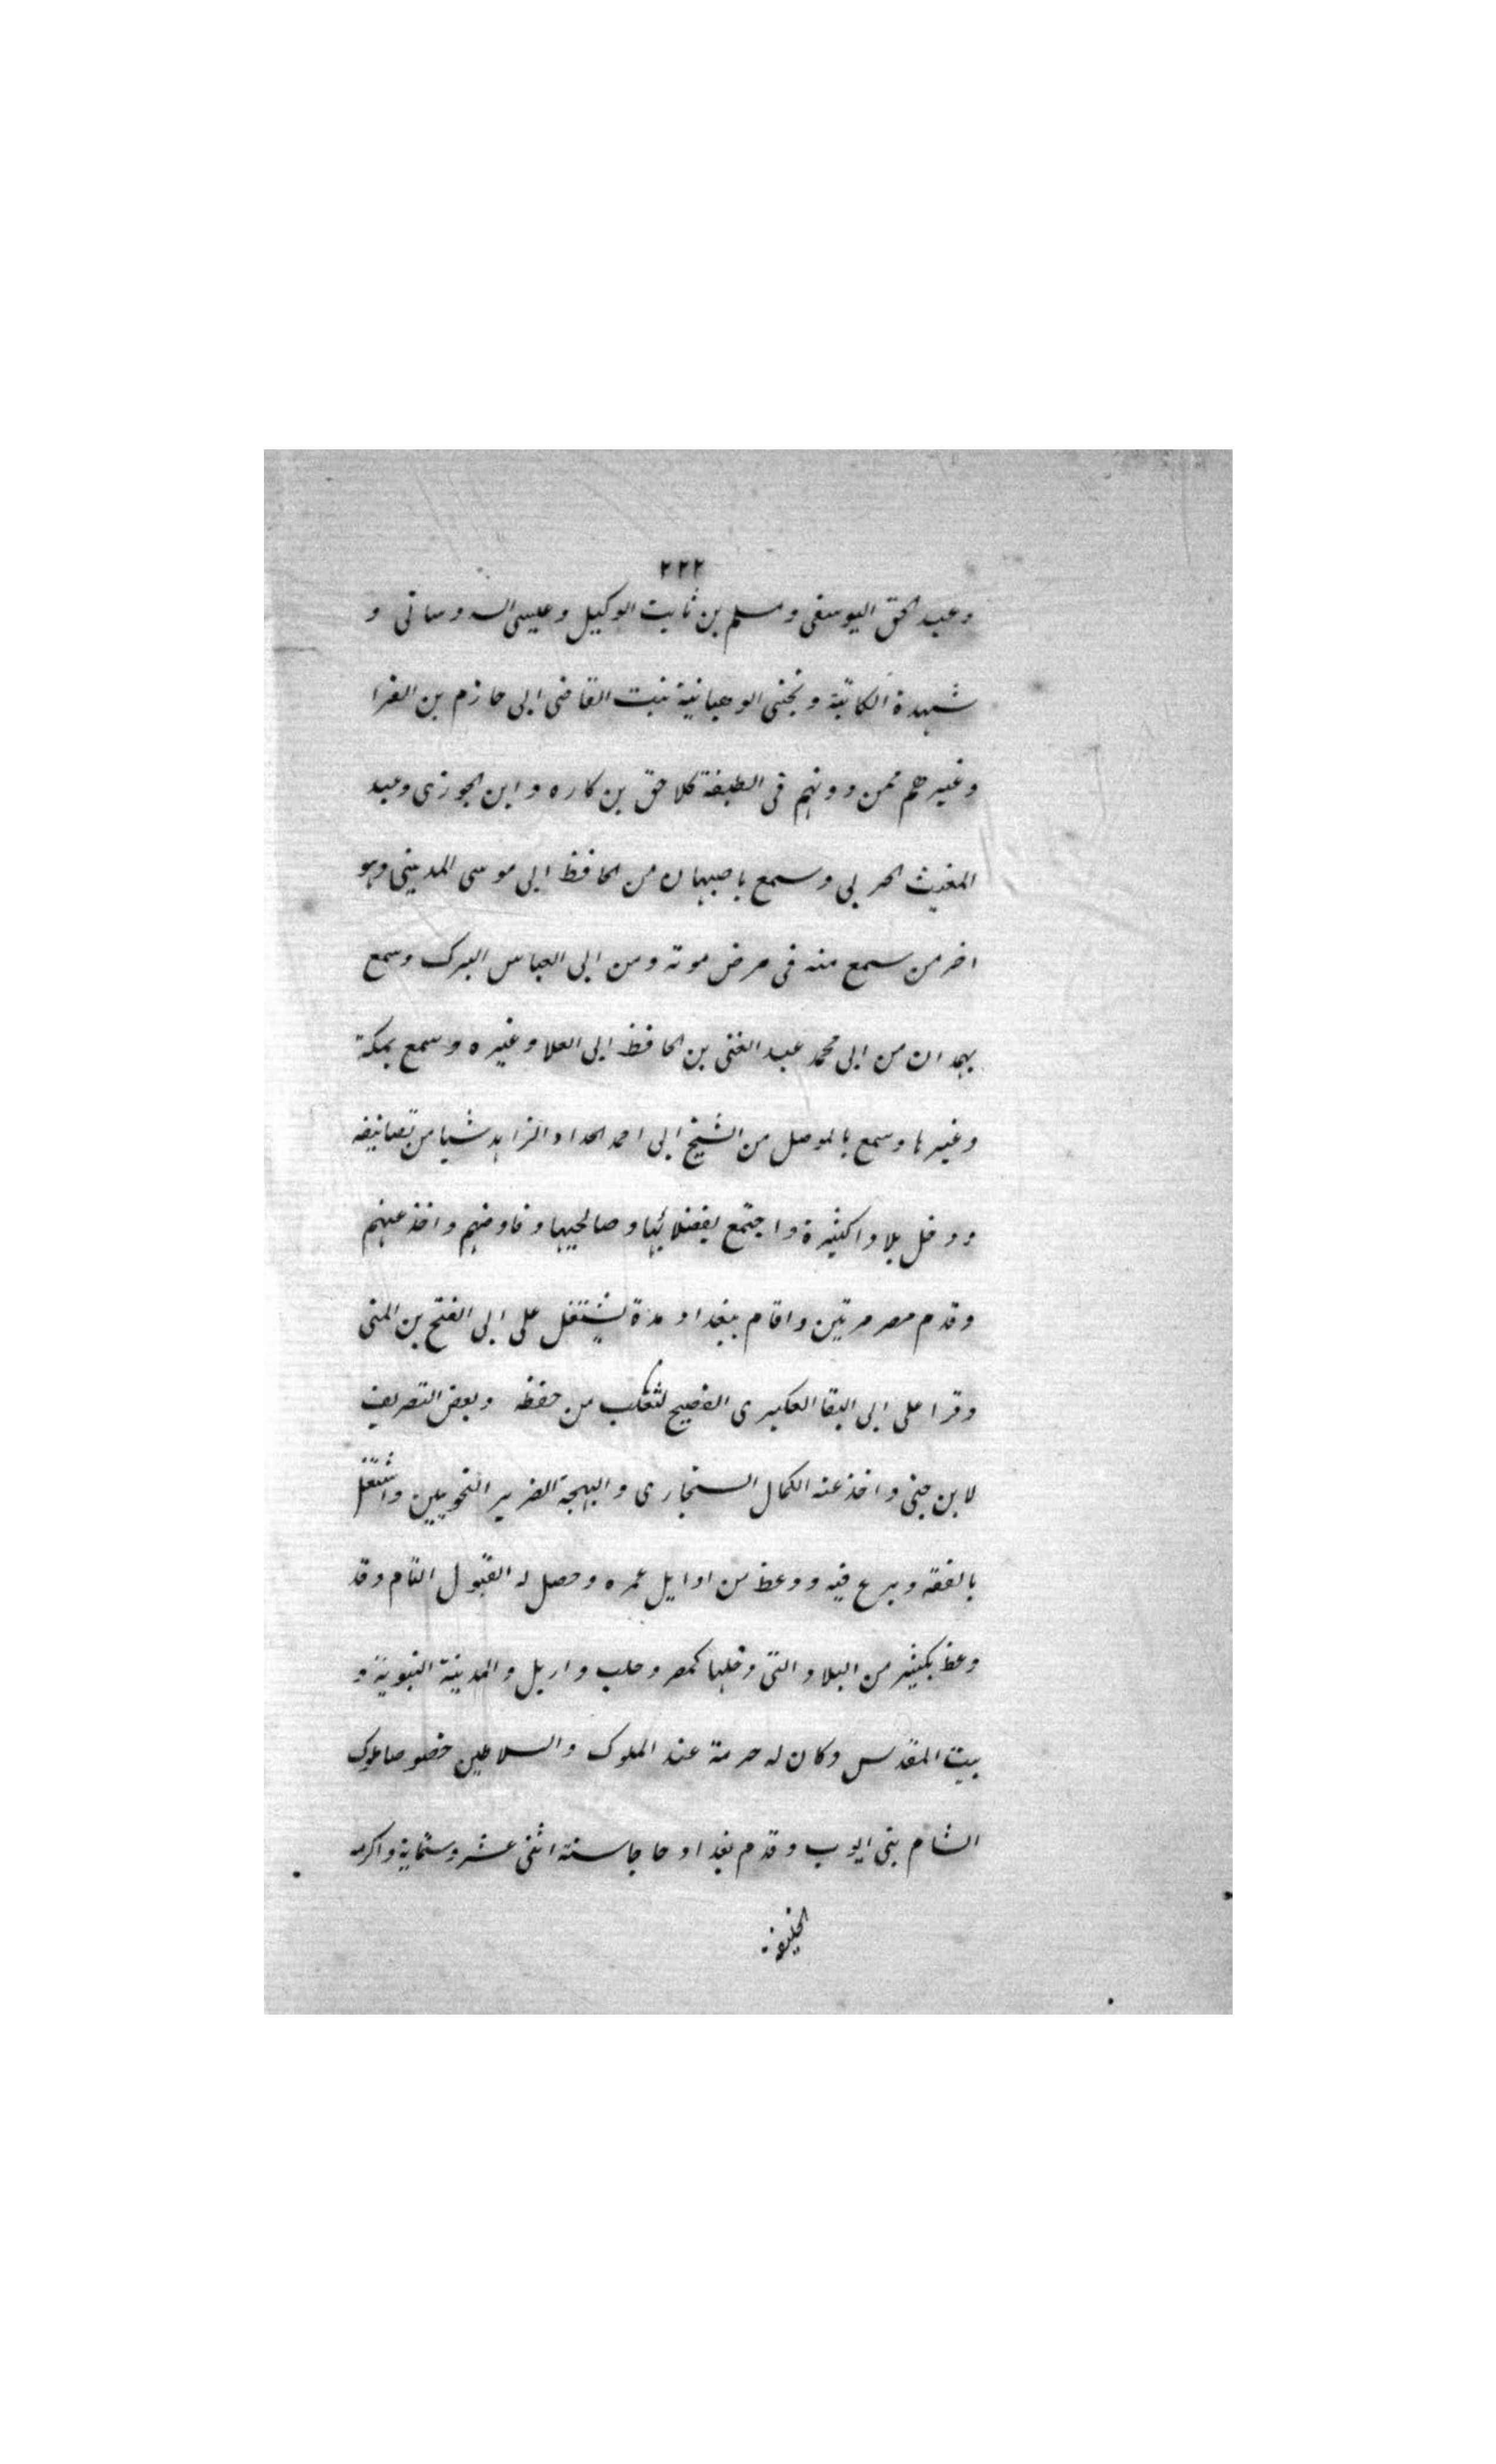 ٢٢٢
وعبد الحق اليوسفى ومسلم بن ثابت الوكيل وعيسى الدوسانى و
شهدة الكاتبة وتجنى الوهبانية بنت القاضى ابى حازم بن الفرا
وغيرهم ممن دونهم فى الطبقة كلاحق بن كاره وابن الجوزى وعبد
المغيث الحربى وسمع باصبهان من الحافظ ابى موسى المدينى وهو
اخر من سمع منه فى مرض موته ومن ابى العباس الترك وسمع
بهمدان من ابى محمد عبد الغنى بن الحافظ ابى العلا وغيره وسمع بمكة
وغيرها وسمع بالموصل من الشيخ ابى احمد الحداد الزاهد شيا من تصانيفه
ودخل بلادا كثيرة واجتمع بفضلائها وصالحيها وفاوضهم واخذ عنهم
وقدم مصر مرتين واقام ببغداد مدة يشتغل على ابى الفتح بن المنى
وقرا على ابى البقا العكبرى الفصيح لثعلب من حفظه وبعض التصريف
لابن جنى واخذ عنه الكمال السنجارى والبهجة الضرير النحويين واشتغل
بالفقه وبرع فيه ووعظ من اوايل عمره وحصل له القبول التام وقد
وعظ بكثير من البلاد التى دخلها كمصر وحلب واربل والمدينة النبوية و
بيت المقدس وكان له حرمة عند الملوك والسلاطين خصوصا ملوك
الشام بنى ايوب وقدم بغداد حاجا سنة اثنى عشر وستماية واكرمه
الخليفة